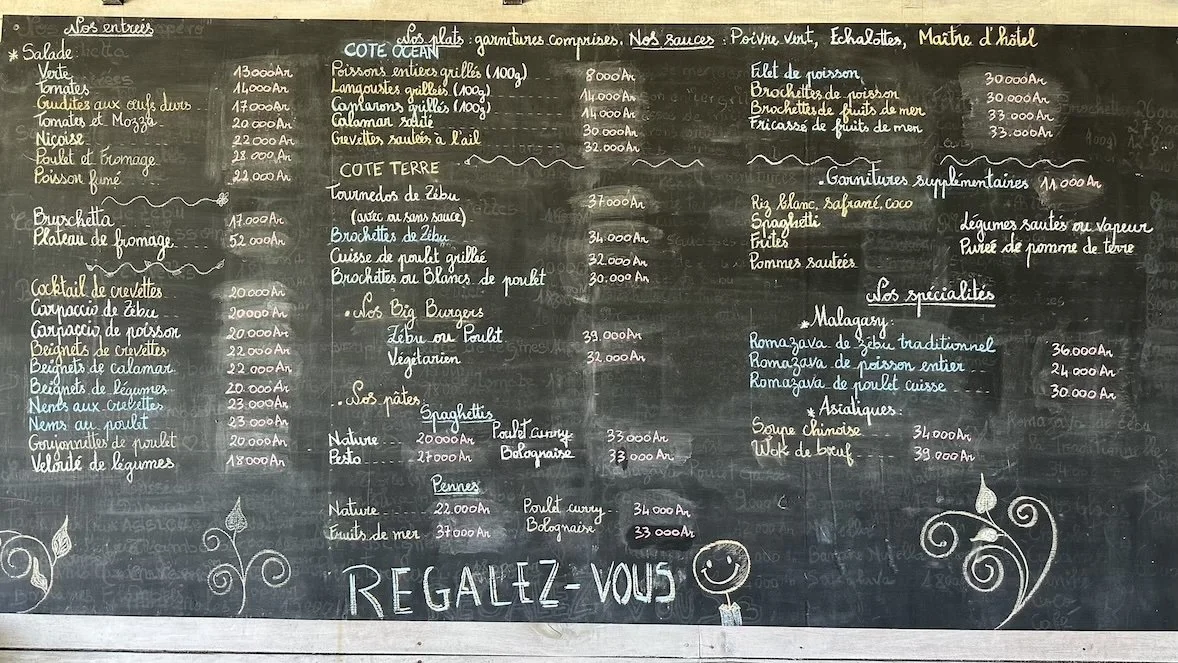 Nos entrées
* Salade
Verte 13000Ar
Tomates 14000Ar
Crudités aux œufs durs 17000Ar
Tomates et Mozza 20000Ar
Niçoise 22000Ar
Poulet et Fromage 28000Ar
Poisson fumé 22.000Ar
Bruschetta 17.000Ar
Plateau de fromage 52000Ar
Cocktail de crevettes 20000Ar
Carpaccio de Zébu 20000Ar
Carpaccio de poisson 20000Ar
Beignets de crevettes 22000Ar
Beignets de calamar 22000Ar
Beignets de légumes 20.000Ar
Nems aux crevettes 23.000Ar
Nems au poulet 23000Ar
Goujonnettes de poulet 20.000Ar
Velouté de légumes 18000Ar
Nos plats : garnitures comprises. Nos sauces : Poivre vert, Echalottes, Maître d'hôtel
COTE OCEAN
Poissons entiers grillés (100g) 8000Ar
Langoustes grillées (100g) 14.000Ar
Camarons grillés (100g) 14000Ar
Calamar sauté 30.000Ar
Crevettes sautées à l'ail 32.000Ar
Filet de poisson 30.000Ar
Brochettes de poisson 30.000Ar
Brochettes de fruits de mer 33.000Ar
Fricassé de fruits de mer 33.000Ar
COTE TERRE
Tournedos de Zébu 37000Ar
(avec ou sans sauce)
Brochettes de Zébu 34.000Ar
Cuisse de poulet grillée 32.000Ar
Brochettes ou Blancs de poulet 30.000Ar
. Nos Big Burgers
Zébu ou Poulet 39.000Ar
Végétarien 32.000Ar
. Nos pâtes
Spaghettis
Nature 20000Ar Poulet curry 33000Ar
Pesto 27000Ar Bolognaise 33.000Ar
Pennes
Nature 22.000Ar Poulet curry 34000Ar
Fruits de mer 37000Ar Bolognaise 33000Ar
. Garnitures supplémentaires 11000Ar
Riz blanc, safrané, coco
Spaghetti Légumes sautés ou vapeur
Frites Purée de pomme de terre
Pommes sautées
Nos spécialités
* Malagasy:
Romazava de zébu traditionnel 36.000Ar
Romazava de poisson entier 24.000Ar
Romazava de poulet cuisse 30.000Ar
* Asiatiques:
Soupe chinoise 34.000Ar
Wok de bœuf 39000Ar
REGALEZ-VOUS